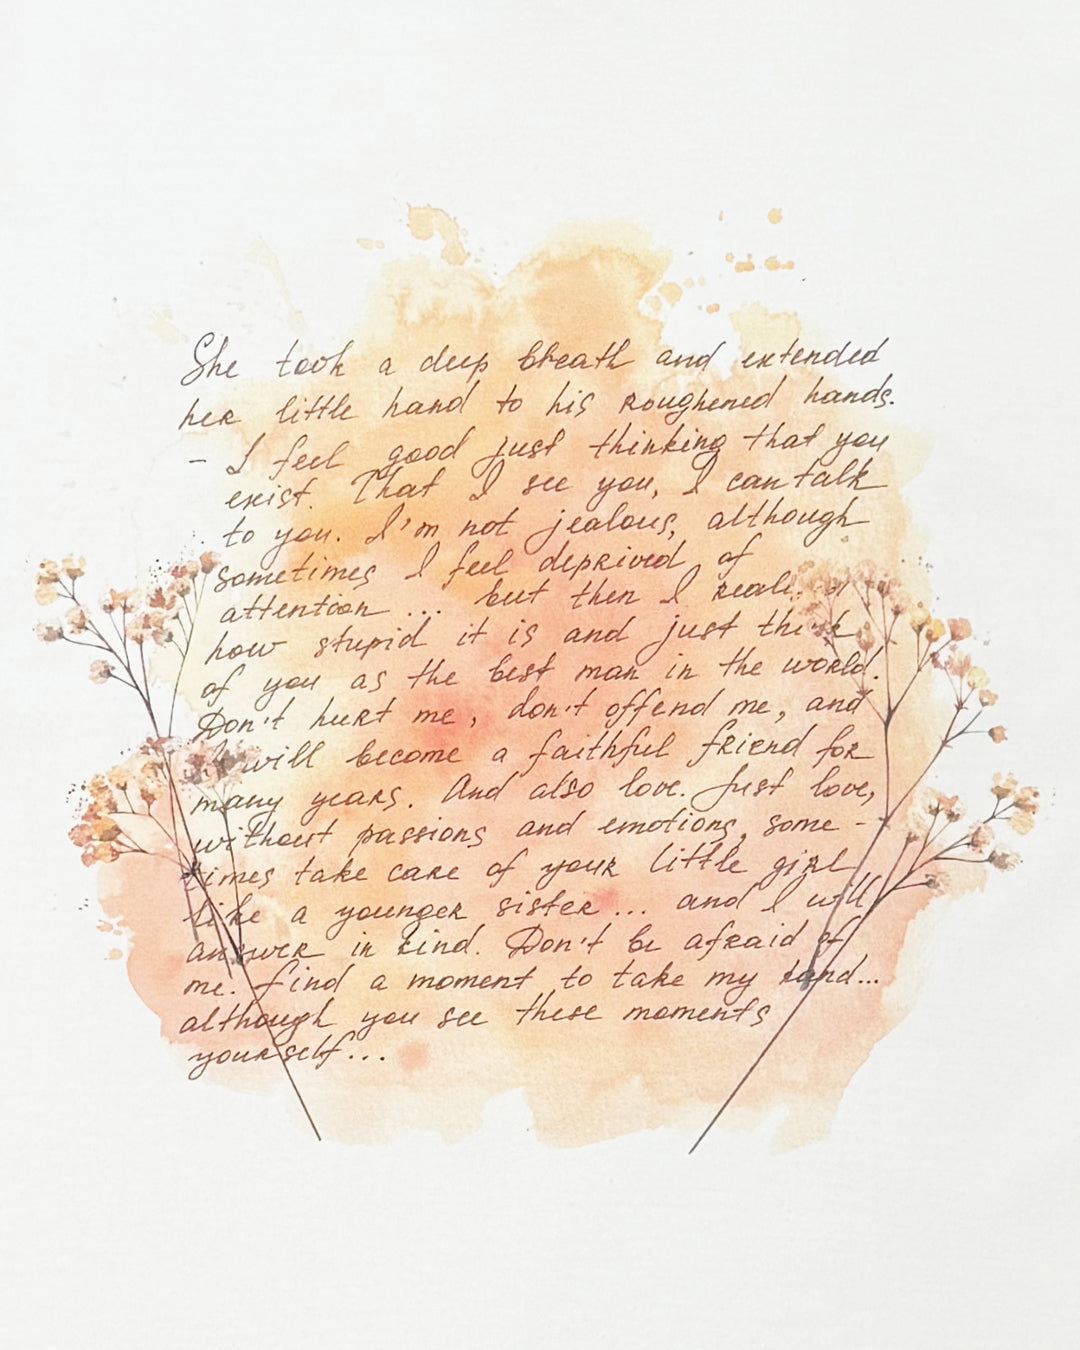 She took a deep breath and extended
her little hand to his roughened hands.
– I feel good just thinking that you
exist. That I see you, I can talk
to you. I'm not jealous, although
sometimes I feel deprived of
attention ... but then I
how stupid it is and just think
of you as the best man in the world.
Don't hurt me, don't offend me, and
will become a faithful friend for
many years. And also love. Just love,
without passions and emotions, some-
times take care of your little girl
like a younger sister... and I will
answer in kind. Don't be afraid of
me. Find a moment to take my hand...
although you see these moments
yourself...